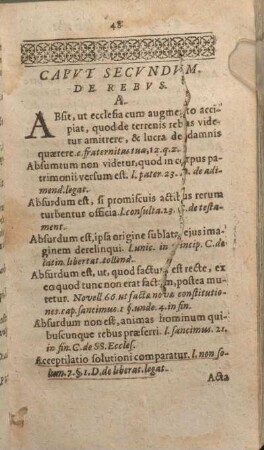 48
CAPVT SECVNDVM,
DE REBUS.
A.
ABsit, ut ecclesia cum augmento acci-
piat, quod de terrenis rebus vide-
tur amittere, & lucra de damnis
quærere. c. fraternitas tua, 12. q. 2.
Absumtum non videtur, quod in corpus pa-
trimonii versum est. l. pater 23. D. de adi-
mend. legat.
Absurdum est, si promiscuis actibus rerum
turbentur officia. l. consulta. 23. C. de testa-
ment.
Absurdum est, ipsa origine sublata, ejus ima-
ginem derelinqui. l. unic. in princip. C. de
latin. libertat. tollend.
Absurdum est, ut, quod factum est recte, ex
eo quod tunc non erat factum, postea mu-
tetur. Novell 66. ut factæ novæ constitutio-
nes. cap. sancimus. 1 §. unde. 4. in fin.
Absurdum non est, animas hominum qui-
buscunque rebus præferri. l. sancimus. 21.
in fin. C. de SS. Eccles.
Acceptilatio solutioni comparatur. l. non so-
lum. 7. §. 1. D. de liberat. legat.
Acta